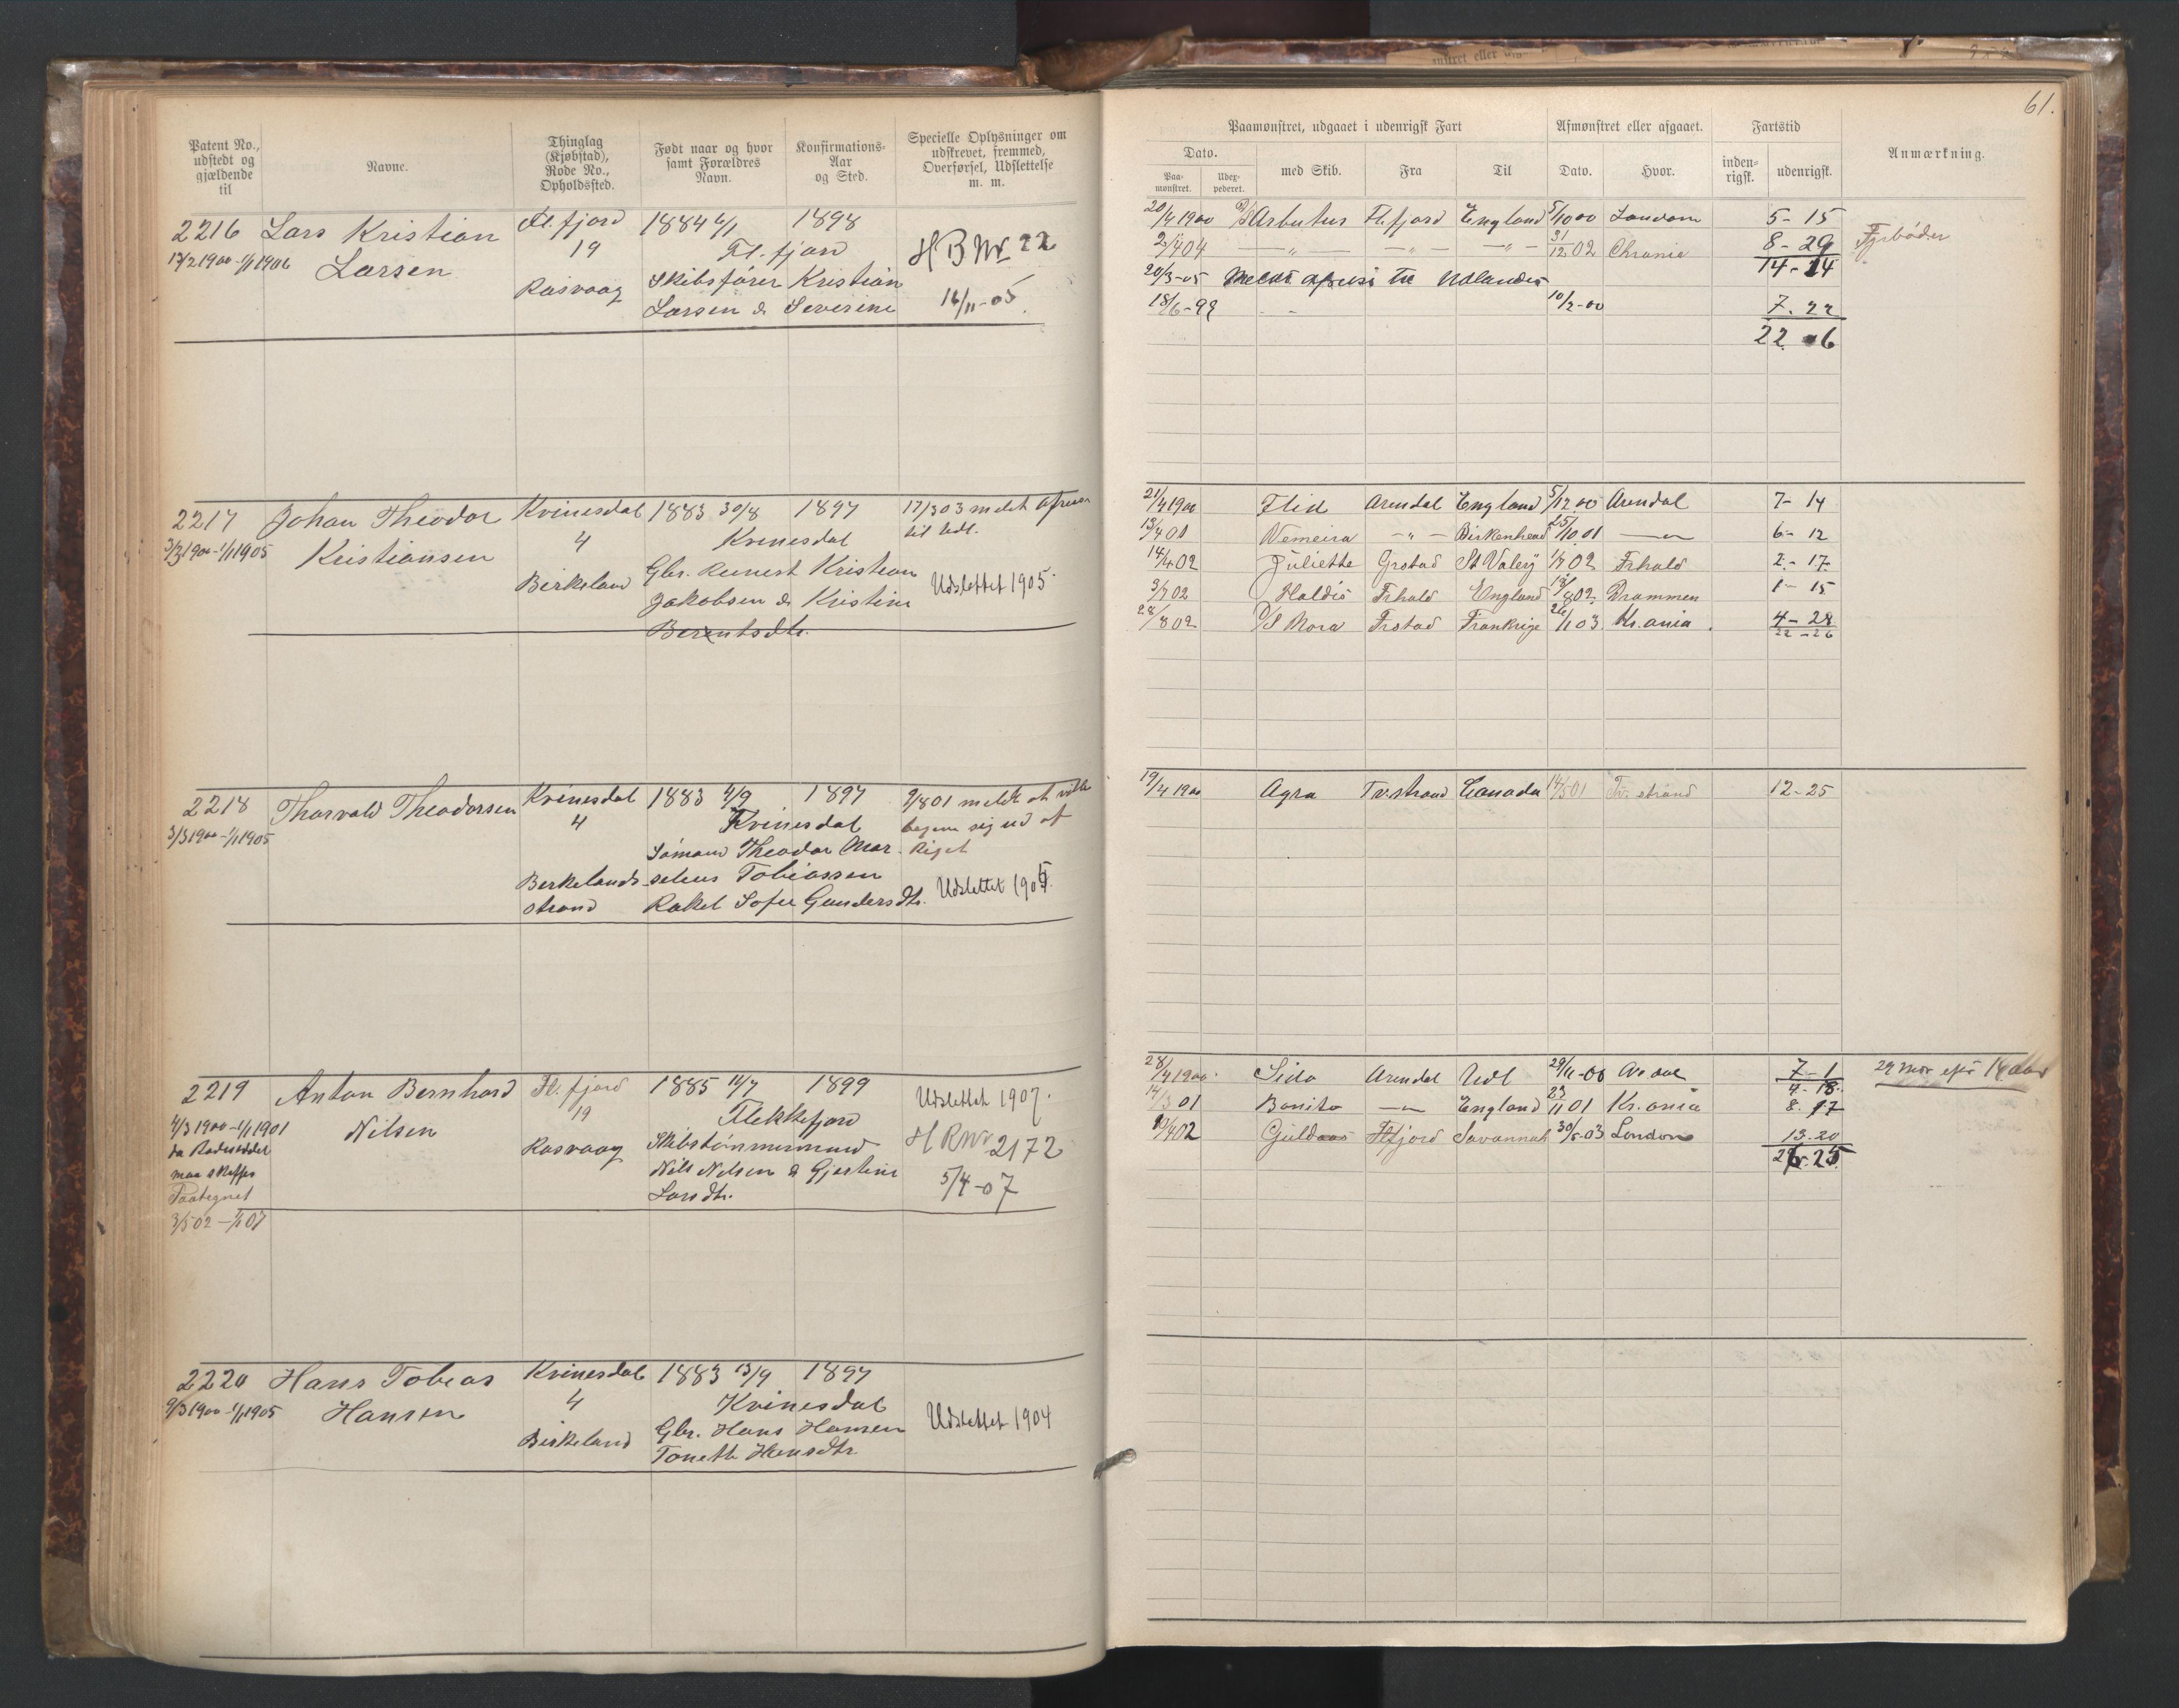 61.
Patent No., udstedt og gjældende til
Navne.
Thinglag (Kjøbstad), Rode No., Opholdssted.
Født naar og hvor samt Forældres Navn.
Konfirmations-Aar og Sted.
Specielle Oplysninger om udskrevet, fremmed, Overførsel, Udslettelse m. m.
Paamønstret, udgaaet i udenrigsk Fart
Afmønstret eller afgaaet.
Fartstid
Anmærkning.
Dato.
Paa-mønstret.
Udex-pederet.
med Skib.
Fra
Til
Dato.
Hvor.
inden-rigsk.
udenrigsk.
2216 Lars Kristian Fl. fjord 1884 6/1 1898
17/2 1900 - 1/1 1906 Larsen 19 Fl. fjord H B Nr 22
Rasvaag Skibsfører Kristian
Larsen & Severine 16/11-05
20/4 1900 D/S Arbutus Fl. fjord England 5/10 00 London 5-15
2/4 04 — " — — " — — " — 31/12 02 Chrania 8-29 Fyrbøder
14-14
20/3-05 Meldt afreist til Udlandet
18/6-99 - - 10/2-00 7.22
22 - 6
2217 Johan Theodor Kvinesdal 1883 30/8 1897 17/3 03 meldt afreise
3/3 1900 - 1/1 1905 Kristiansen 4 Kvinesdal til Udl.
Birkeland Gbr. Reinert Kristian
Jakobsen & Kristine Udslettet 1905.
Berentsdtr.
21/4 1900 Flid Arendal England 5/12 00 Arendal 7-14
13/4 01 Nemeira — " — Birkenhead 25/10 01 — " — 6-12
14/4 02 Juliette Grstad St Valery 1/7 02 Frhald 2-17
3/7 02 Haldis Frhald England 18/8 02 Drammen 1-15
28/8 02 D/S Nora Frstad Frankrige 26/1 03 Kr.ania 4-28
22-26
2218 Thorvald Theodorsen Kvinesdal 1883 4/9 1897 9/8 01 meldt at ville
3/3 1900 - 1/1 1905 4 Kvinesdal begive sig ud af
Sømand Theodor Mar- Riget
Berkelands- selius Tobiassen
strand Rakel Sofie Gundersdtr. Udslettet 1905.
19/4 1900 Agra Tv.strand Canada 14/5 01 Tv. strand 12-25
2219 Anton Bernhard Fl. fjord 1885 11/7 1899 Udslettet 1907.
4/3 1900 - 1/1 1901 Nilsen 19 Flekkefjord
da Radseddel Rasvaag Skibstømmermand H R Nr 2172
maa skaffes Nils Nilsen & Gjertine
Paategnet Larsdtr. 5/4-07
3/5 02 - 1/1 07
28/4 1900 Sido Arendal Udl 29/11-00 Ar.dal 7-1 29 Mdr efter 14 Aar
4-18
14/3 01 Bonito — " — England 23/11 01 Kr.ania 8.17
10/4 02 Guldaas Flfjord Savannah 30/5-03 London 13.20
26.25
2220 Hans Tobias Kvinesdal 1883 13/9 1897
9/3 1900 - 1/1 1905 Hansen 4 Kvinesdal
Birkeland Gbr. Hans Hansen Udslettet 1904
Tonette Hansdtr.